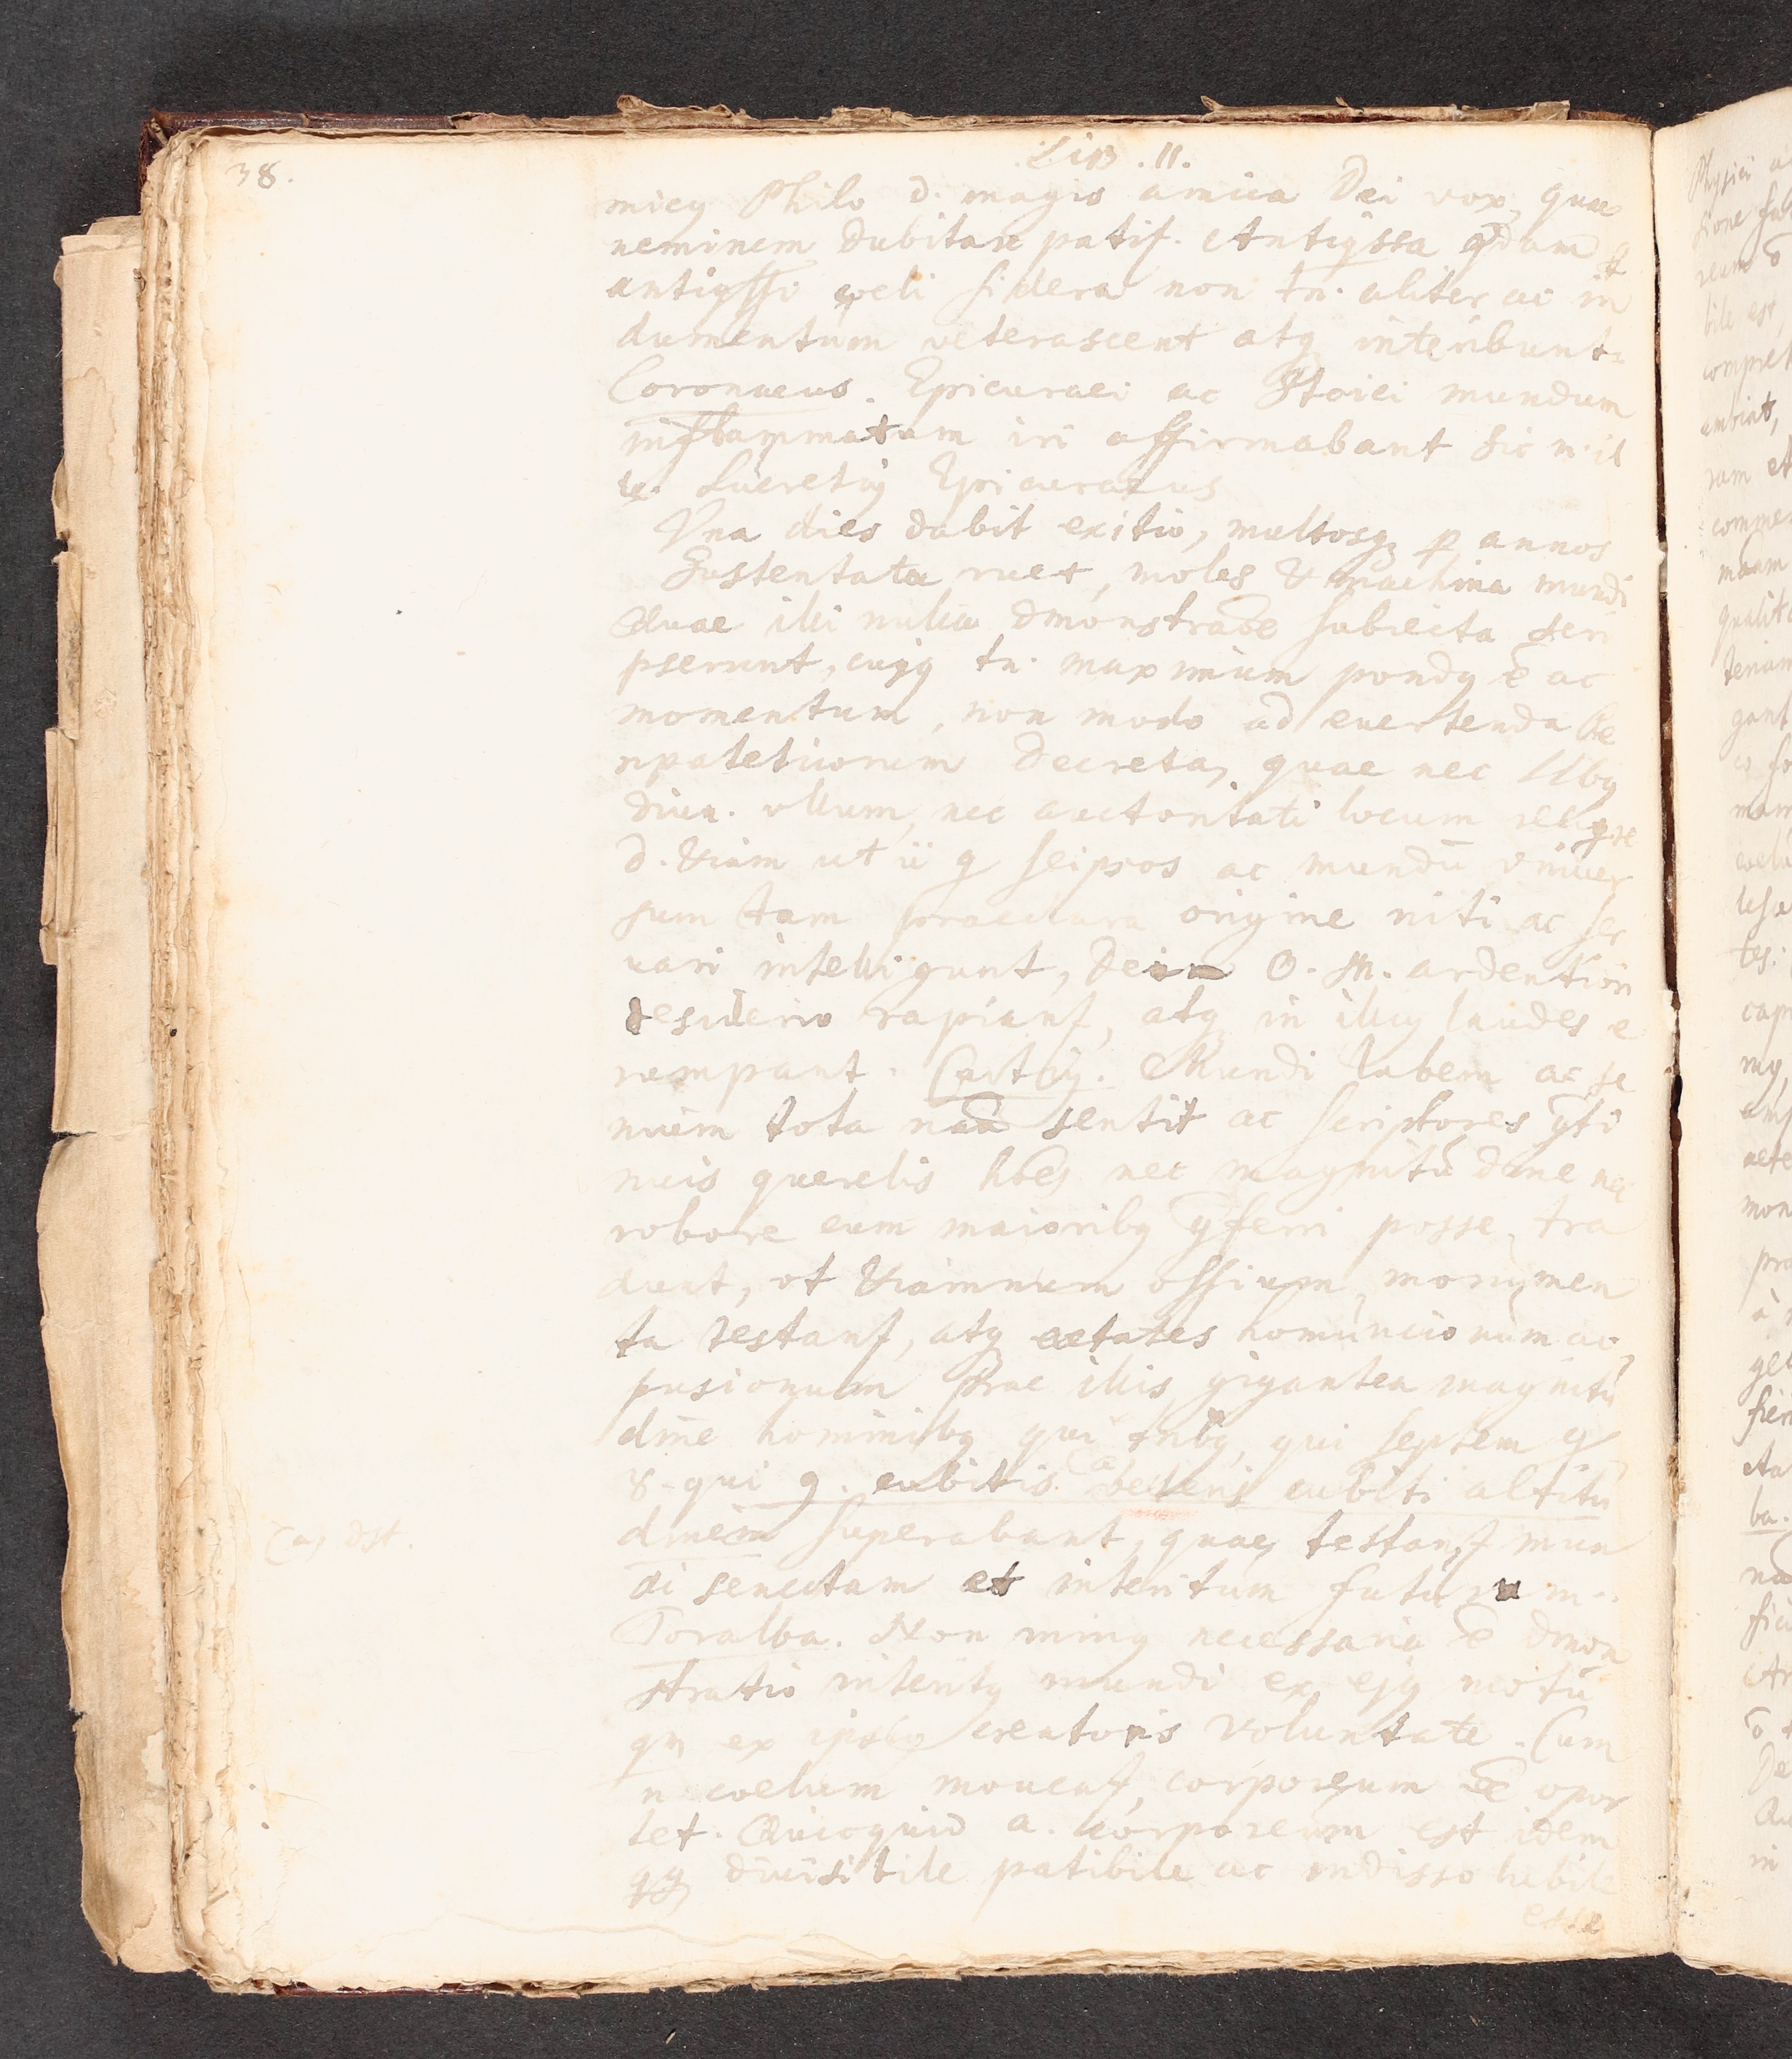 38.
Lib. II.
micq Philo d. magis amica Dei vox, quae
neminem dubitare patit. Antiqssa qdam st
antiqssi coeli sidera non tn. aliter ac in
dumentum veterascent atq interibunt.
Coronaeus. Epicuraei ac Stoici mundum
inflammatum iri affirmabant sic n. il
le. Lucretiq Epicuraeus
Vna dies dabit exitio, multosq p annos
Sustentata ruet, moles & machina mundi
Quae illi nulla dmonstraõe subiecta scri
pserunt, cujq tn. maximum pondq ẽ ac
momentum, non modo ad euertenda Pe
ripateticorum Decreta, quae nec Vlbq
diuer. vllum, nec auctoritati locum reliqre
d. etiam ut ii q seipsos ac mundũ vniuer
sum tam praeclara origine niti ac ser
uari intelligunt, Dei O. M. ardentiori
desiderio rapiant, atq in illiq laudes e
rumpant. Curtiq. Mundi labem ac se
nium tota naã sentit ac scriptores qti
nuis querelis hoẽs nec magnitudine nec
robore cum maioribq qferri posse, tra
dunt, ut etiamnum ossium monumen
ta testant, atq aetates homuncionum ac
pusionum prae illis gigantea magnitu
dine hominibq qui snbq, qui septem q
8. qui 9. cubitis (a) cubiti altitu
dinem superabant, quae testant mun
di senectam et interitum futurum.
(a) dst.
Toralba. Non minq necessaria ẽ dmon
stratio interitq mundi ex ejq motu
qm ex ipsiq creatoris voluntate. Cum
n coelum moueat, corporeum eẽ opor
tet. Quicquid a. corporeum est idem
qq diuisibile patibile ac indissolubile
esse